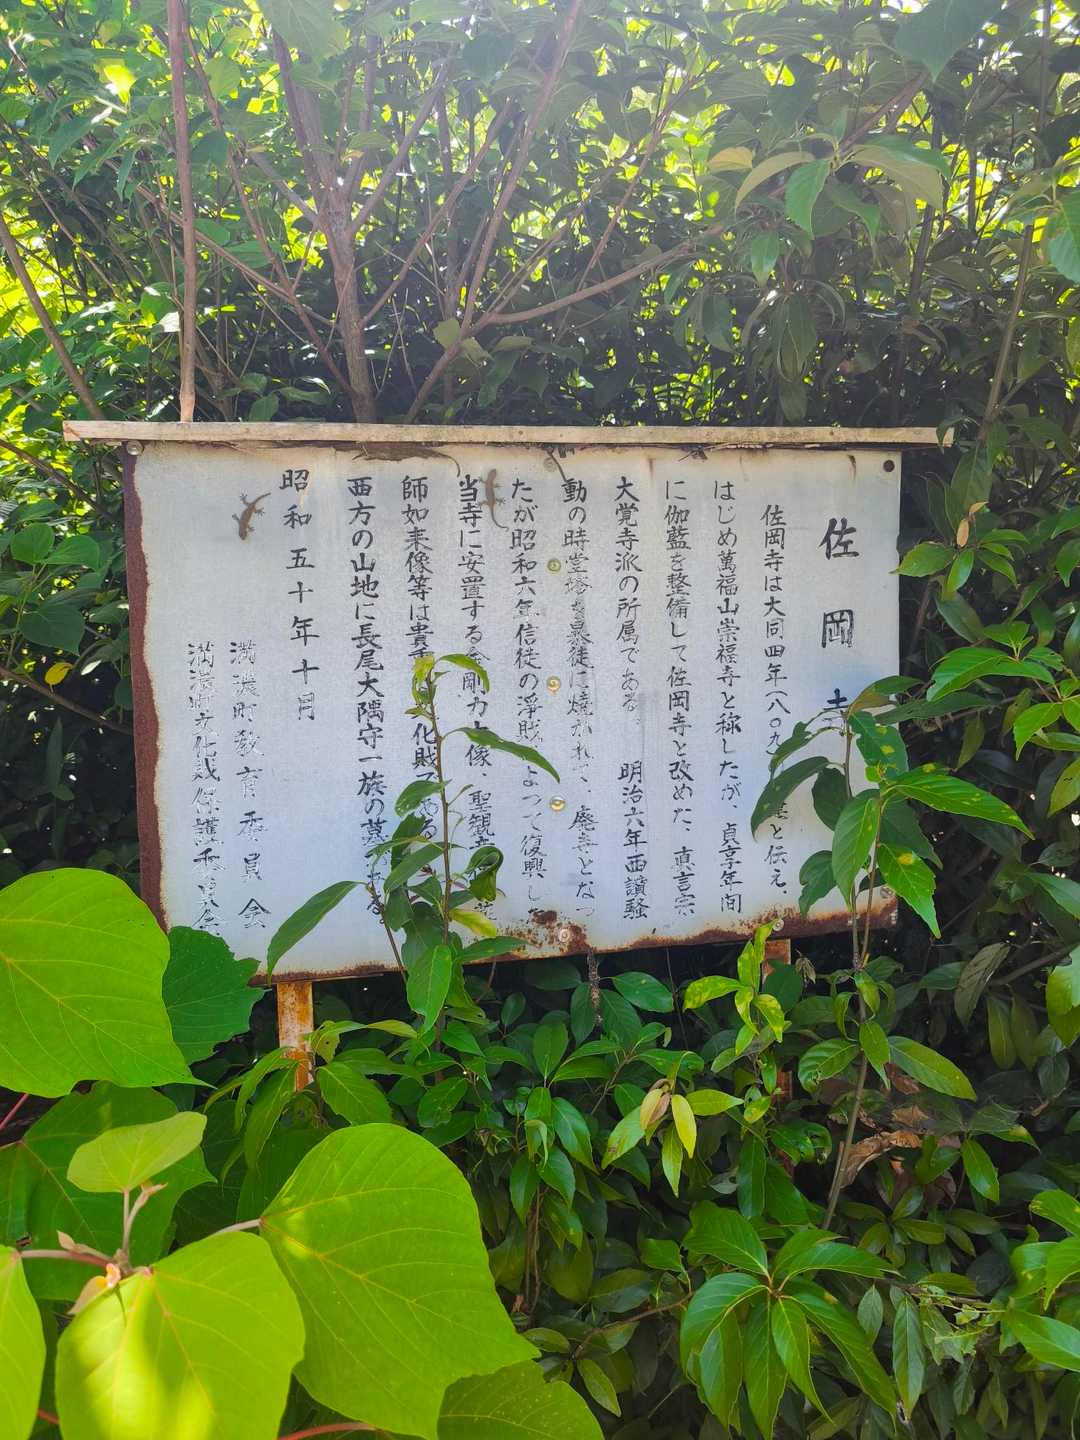 佐岡寺
佐岡寺は大同四年(八〇九 と伝え、
はじめ萬福山崇福寺と称したが、貞享年間
に伽藍を整備して佐岡寺と改めた、真言宗
大覚寺派の所属である。 明治六年西讃騒
動の時堂塔を暴徒に焼かれて、廃寺となっ
たが昭和六年信徒の浄財によって復興し
当寺に安置する金剛力士像、聖観音
師如来像等は貴重 文化財である
西方の山地に長尾大隅守一族の墓がある。
昭和五十年十月
満濃町教育委員会
満濃町文化財保護委員会